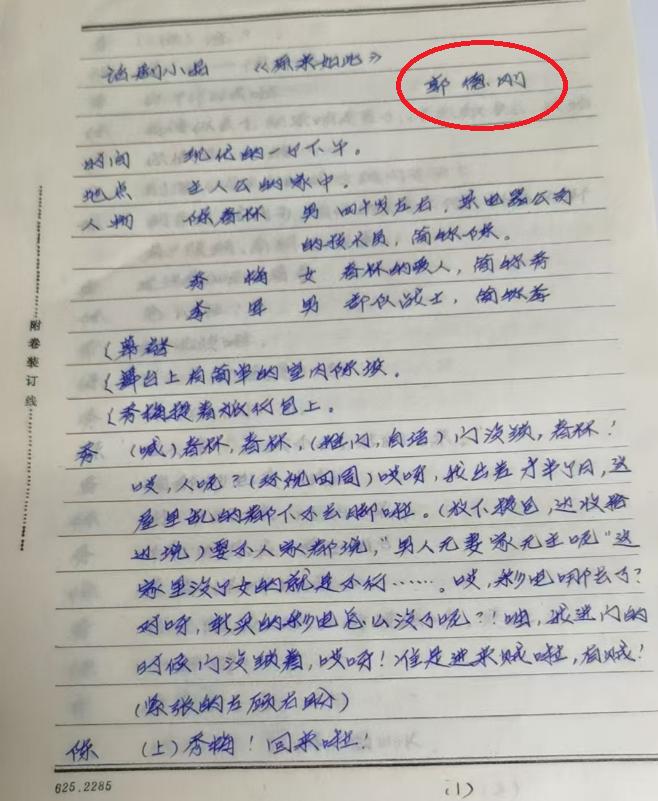 话剧小品 《原来如此》
郭德刚
时间 现代的一个下午。
地点 主人公的家中。
人物 陈春林 男 四十岁左右,某电器公司
的技术员,简称陈。
秀梅 女 春林的爱人,简称秀
李军 男 部队战士,简称李
(幕启
(舞台上有简单的室内陈设。
(秀梅提着旅行包上。
秀 (喊)春林,春林,(推门,自语)门没锁,春林!
哎,人呢?(环视四周)哎呀,我出差才半个月,这
屋里乱的都下不去脚啦。(放下提包,边收拾
边说)要不人家都说,“男人无妻家无主呢”这
家里没个女的就是不行……。哎,彩电哪去了?
对呀,新买的彩电怎么没了呢?!哦,我进门的
时候门没锁着,哎呀!准是进来贼啦,有贼!
(紧张的左顾右盼)
陈 (上)秀梅!回来啦!
附卷装订线
625.2285
(1)